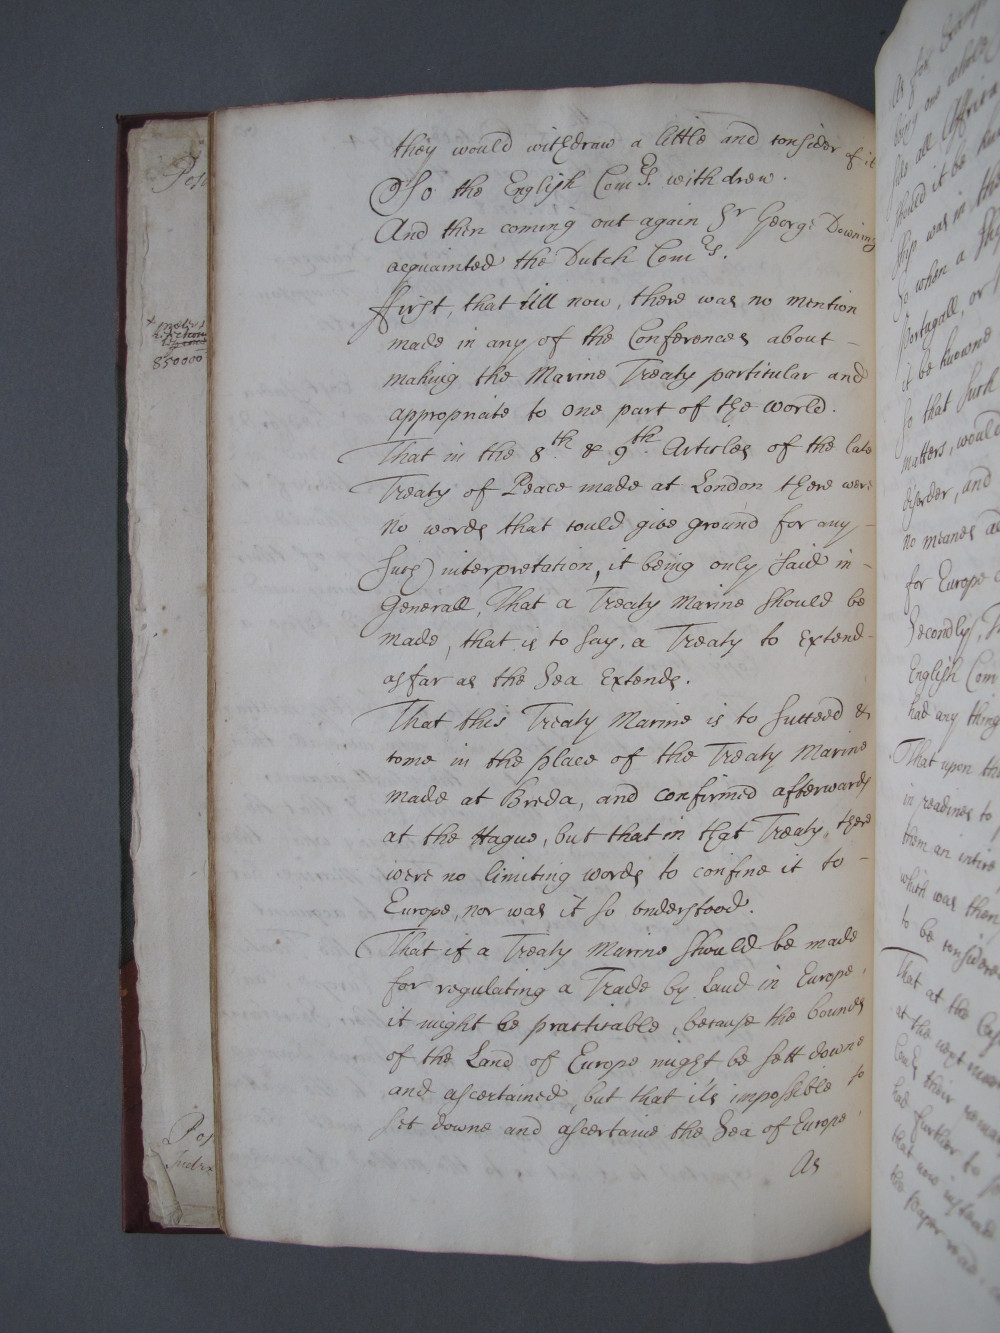 they would withdraw a little and consider of it
So the English Com.rs withdrew.
And then coming out again Sr George Downing
acquainted the Dutch Com.rs.
ffirst, that till now, there was no mention
made in any of the Conferences about
making the Marine Treaty particular and
appropriate to one part of the world.
That in the 8th. & 9th. Articles of the late
Treaty of Peace made at London there were
no words that could give ground for any
such interpretation, it being only said in
Generall, That a Treaty Marine should be
made, that is to say, a Treaty to extend
as far as the Sea Extends.
That this Treaty Marine is to succeed &
come in the place of the Treaty Marine
made at Breda, and confirmed afterwards
at the Hague, but that in that Treaty, there
were no limiting words to confine it to
Europe, nor was it so understood.
That if a Treaty Marine should be made
for regulating a Trade by Land in Europe,
it might be practicable, because the bounds
of the Land of Europe might be sett downe
and ascertained, but that it is impossible to
set downe and ascertaine the Sea of Europe
As
850000
As for
being one whole
all Affrica
should it be
ship was in the
So when a
Portugall, or
it be knowne
So that such
matters, would
disorder, and
no meanes
for Europe
Secondly,
English Com
had any thing
That upon the
in readines to
from an intire
which was then
to be considered
That at the
at the next
had further to
that now instead
the Paper read